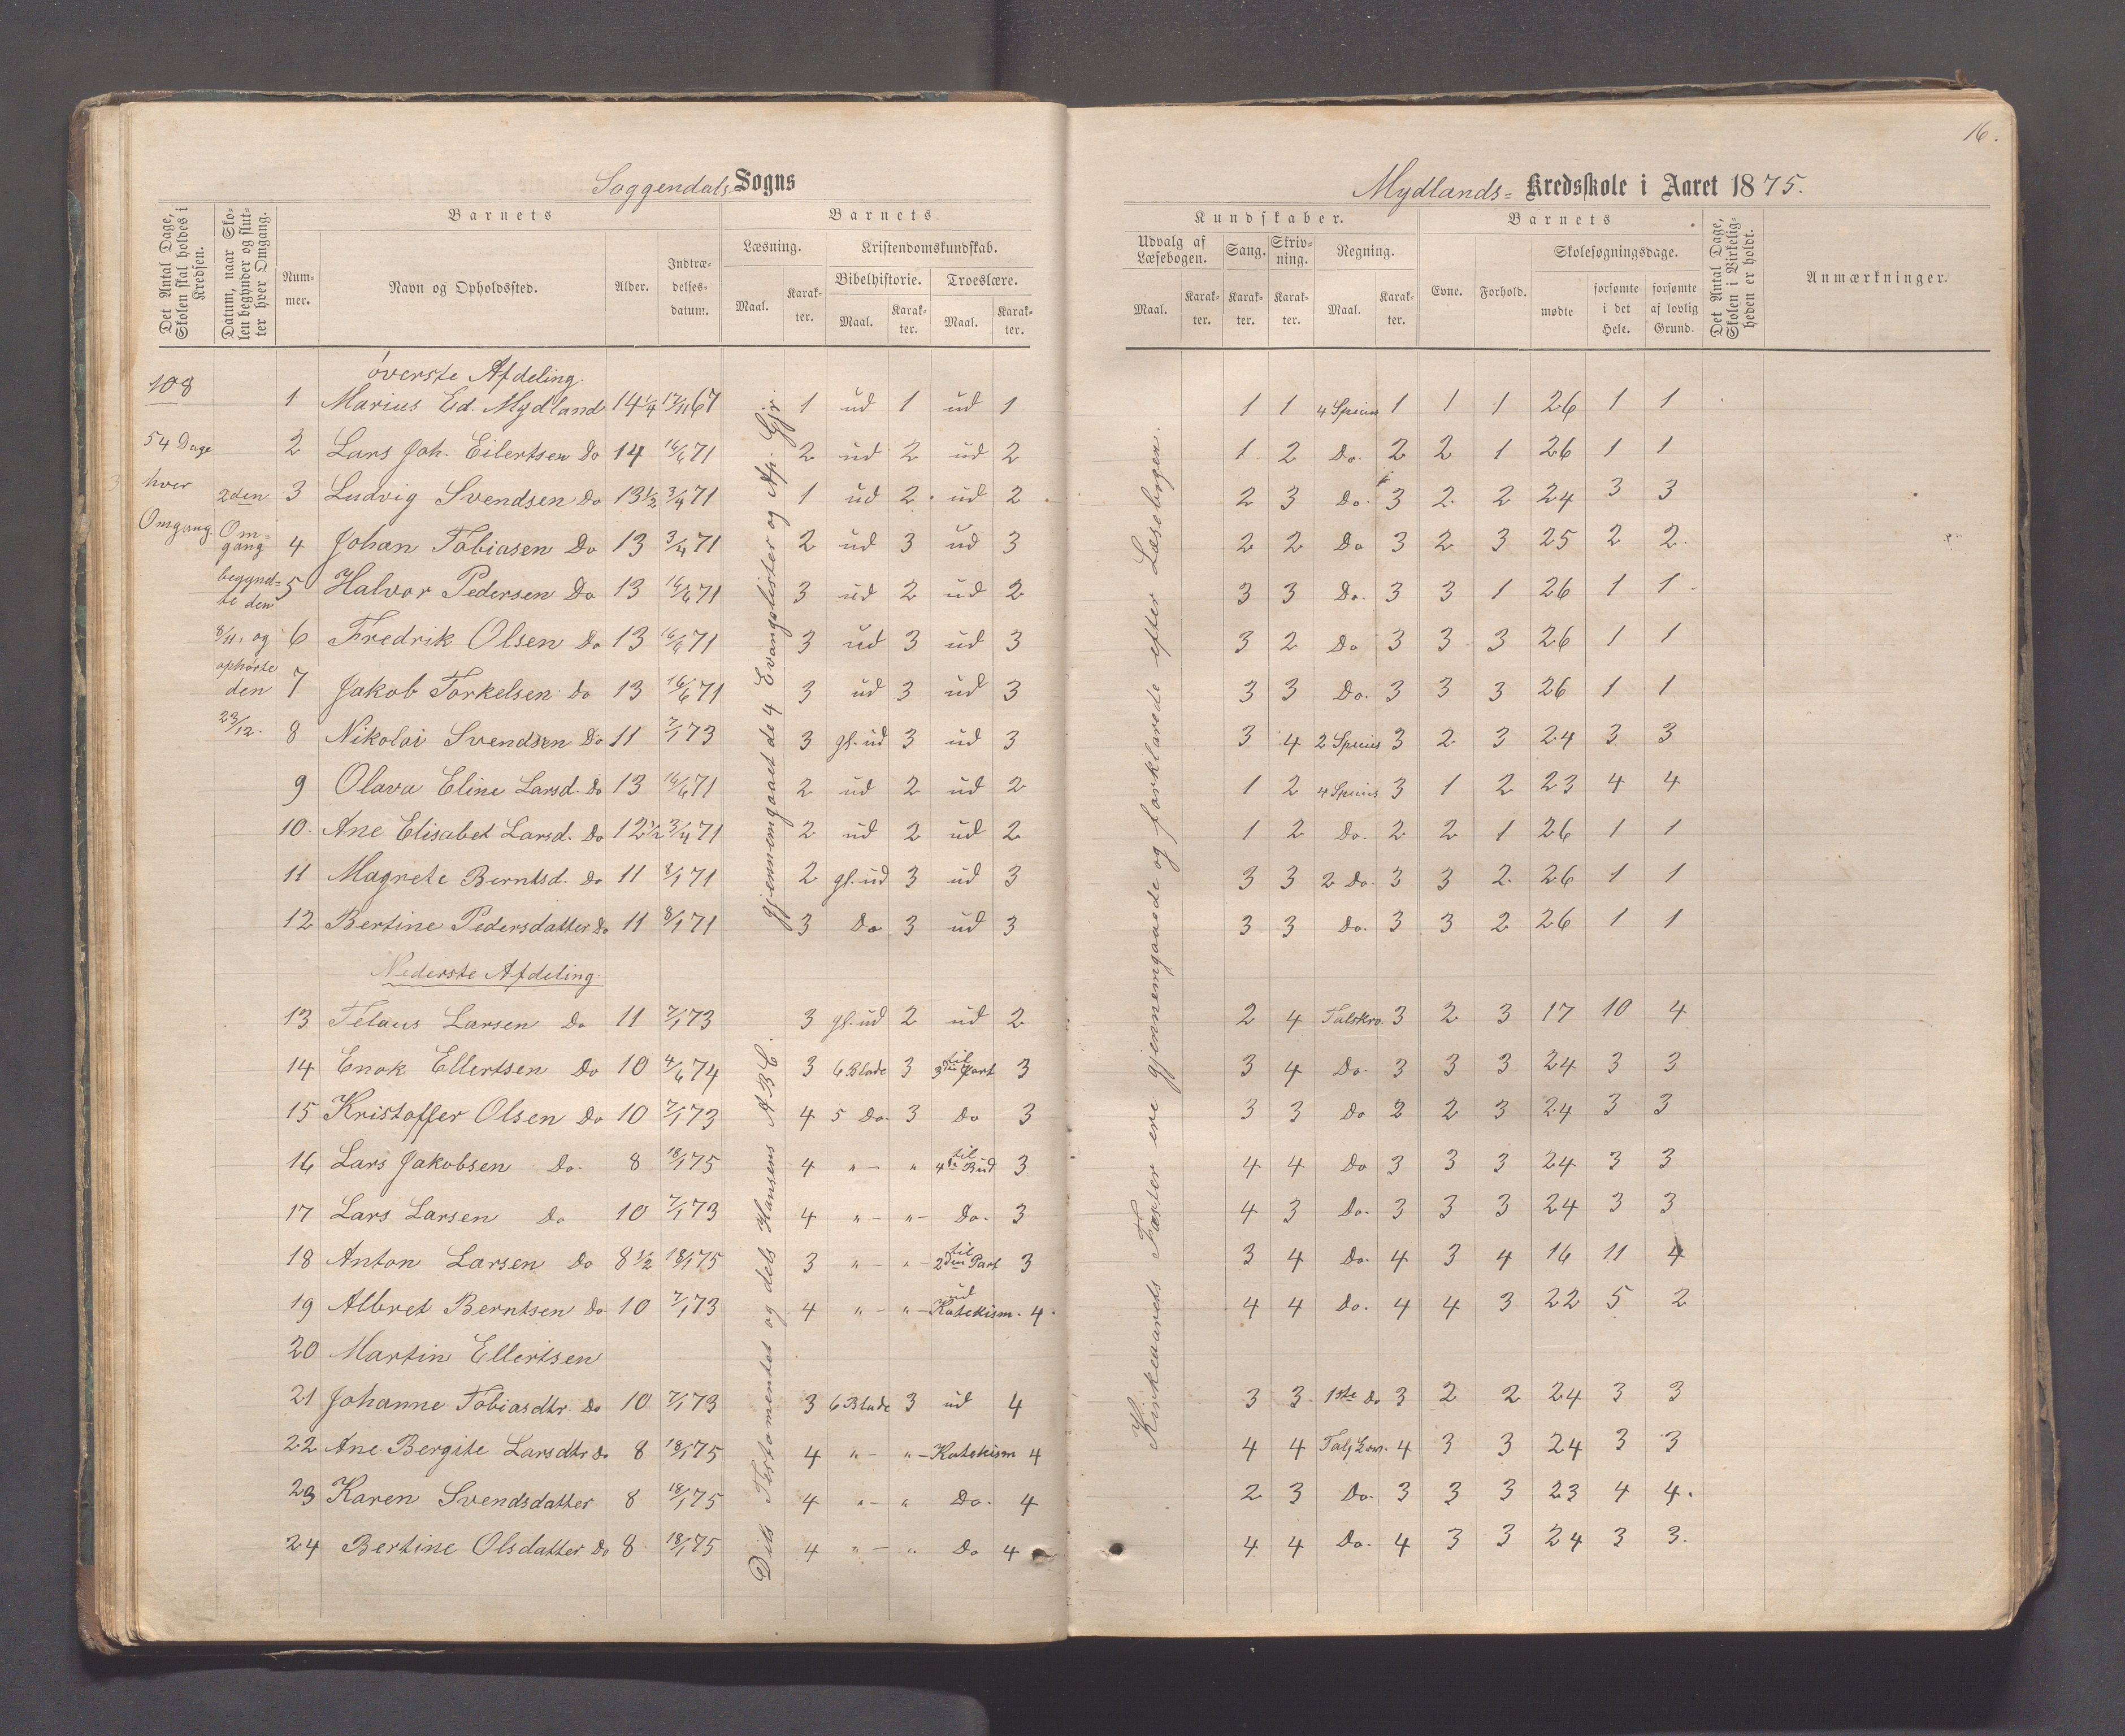 16.
Soggendals Sogns
Mydlands= Kredsskole i Aaret 1875.
Det Antal Dage, Skolen skal holdes i Kredsen.
Datum, naar Skolen begynder og slutter hver Omgang.
Barnets
Nummer.
Navn og Opholdssted.
Alder.
Indtrædelsesdatum.
Barnets
Læsning.
Maal.
Karakter.
Kristendomskundskab.
Bibelhistorie.
Maal.
Karakter.
Troeslære.
Maal.
Karakter.
Kundskaber.
Udvalg af Læsebogen.
Maal.
Karakter.
Sang.
Karakter.
Skrivning.
Karakter.
Regning.
Maal.
Karakter.
Barnets
Evne.
Forhold.
Skolesøgningsdage.
mødte
forsømte i det Hele.
forsømte af lovlig Grund.
Det Antal Dage, Skolen i Virkeligheden er holdt.
Anmærkninger.
108
54 Dage
hver
Omgang.
2den
Om=
gang
begynd=
te den
8/11. og
ophørte
den
23/12.
gjennemgaaet de 4 Evangelister og Ap. Gjr.
Dils Testamentet og dels Hansens ABC.
Kirkeaarets Tæxter ere gjennemgaaede og forklarede efter Læsebogen.
øverste Afdeling.
1 Marius Ed. Mydland 14 1/4 17/11 67 1 ud 1 ud 1 1 1 4 Species 1 1 1 26 1 1
2 Lars Joh. Eilertsen Do 14 16/6 71 2 ud 2 ud 2 1 2 Do. 2 2 1 26 1 1
3 Ludvig Svendsen Do 13 1/2 3/4 71 1 ud 2 ud 2 2 3 Do. 3 2 2 24 3 3
4 Johan Tobiasen Do 13 3/4 71 2 ud 3 ud 3 2 2 Do 3 2 3 25 2 2
5 Halvor Pedersen Do 13 16/6 71 3 ud 2 ud 2 3 3 Do. 3 3 1 26 1 1
6 Fredrik Olsen Do 13 16/6 71 3 ud 3 ud 3 3 2 Do 3 3 3 26 1 1
7 Jakob Torkelsen Do 13 16/6 71 3 ud 3 ud 3 3 3 Do. 3 3 3 26 1 1
8 Nikolai Svendsen Do 11 7/1 73 3 gl. ud 3 ud 3 3 4 2 Species 3 2 3 24 3 3
9 Olava Eline Larsd. Do 13 16/6 71 2 ud 2 ud 2 1 2 4 Species 3 1 2 23 4 4
10. Ane Elisabet Larsd. Do 12 1/2 3/4 71 2 ud 2 ud 2 1 2 Do. 2 2 1 26 1 1
11 Magrete Berntsd. Do 11 8/1 71 2 gl. ud 3 ud 3 3 3 2 Do. 3 3 2 26 1 1
12 Bertine Pedersdatter Do 11 8/1 71 3 Do 3 ud 3 3 3 Do. 3 3 2 26 1 1
Nederste Afdeling.
13 Telaus Larsen Do 11 7/1 73 3 gl. ud 2 ud 2 2 4 Talskrv. 3 2 3 17 10 4
14 Enok Ellertsen Do 10 4/6 74 3 6 Blade 3 til 3die Part 3 3 4 Do 3 3 3 24 3 3
15 Kristoffer Olsen Do 10 7/1 73 4 5 Do. 3 Do 3 3 3 Do 2 2 3 24 3 3
16 Lars Jakobsen Do. 8 18/1 75 4 " - " til 4de Bud 3 4 4 Do 3 3 3 24 3 3
17 Lars Larsen Do 10 7/1 73 4 " - " - Do. 3 4 3 Do. 3 3 3 24 3 3
18 Anton Larsen Do 8 1/2 18/1 75 3 " - " - til 2den Part 3 3 4 Do. 4 3 4 16 11 4
19 Albret Berntsen Do 10 7/1 73 4 " - " - ud Katekism. 4. 4 4 Do. 4 4 3 22 5 2
20 Martin Ellertsen
21 Johanne Tobiasdtr. Do 10 7/1 73 3 6 Blade 3 ud 4 3 3 1ste Do 3 2 2 24 3 3
22 Ane Bergite Larsdtr Do 8 18/1 75 4 " - " - Katekism 4 4 4 4 3 3 24 3 3
23 Karen Svendsdatter 8 18/1 75 4 " - " Do. 4 2 3 Do. 3 3 3 23 4 4.
24 Bertine Olsdatter Do 8 18/1 75 4 " - " Do 4 4 4 Do. 4 3 3 24 3 3.